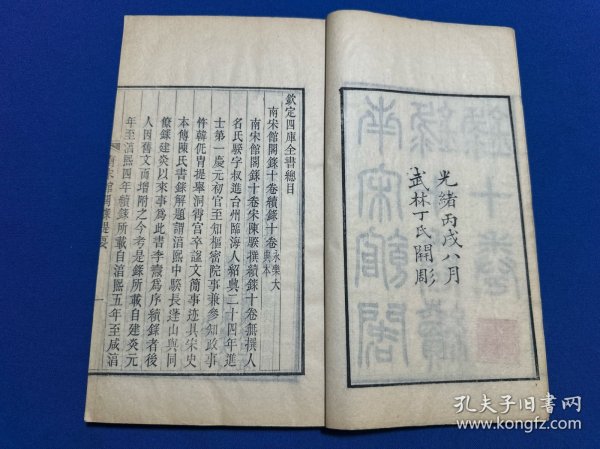 光緒丙戌八月
武林丁氏開彫
欽定四庫全書總目
南宋館閣錄十卷續錄十卷永樂大典本
南宋館閣錄十卷宋陳騤撰續錄十卷無撰人
名氏騤字叔進台州臨海人紹興二十四年進
士第一慶元初官至知樞密院事兼參知政事
忤韓侂胄提舉洞霄宮卒謚文簡事迹具宋史
本傳陳氏書錄解題謂淳熙中騤長蓬山與同
僚錄建炎以來事為此書李燾為序續錄者後
人因舊文而增附之今考是錄所載自建炎元
年至淳熙四年續錄所載自淳熙五年至咸淳
孔夫子旧书网
www.kongfz.com